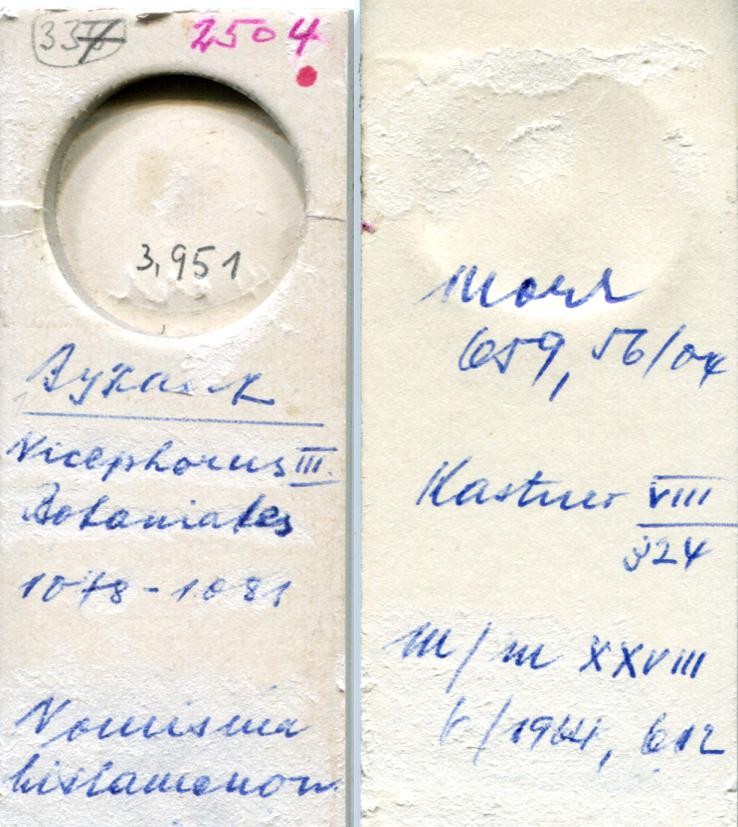 2504
3,951
Byzanz
Nicephorus III.
Botaniates
1078-1081
Nomisma
histamenon
659, 56/04
Kastner VIII
324
M/M XXVIII
V/1964, 612